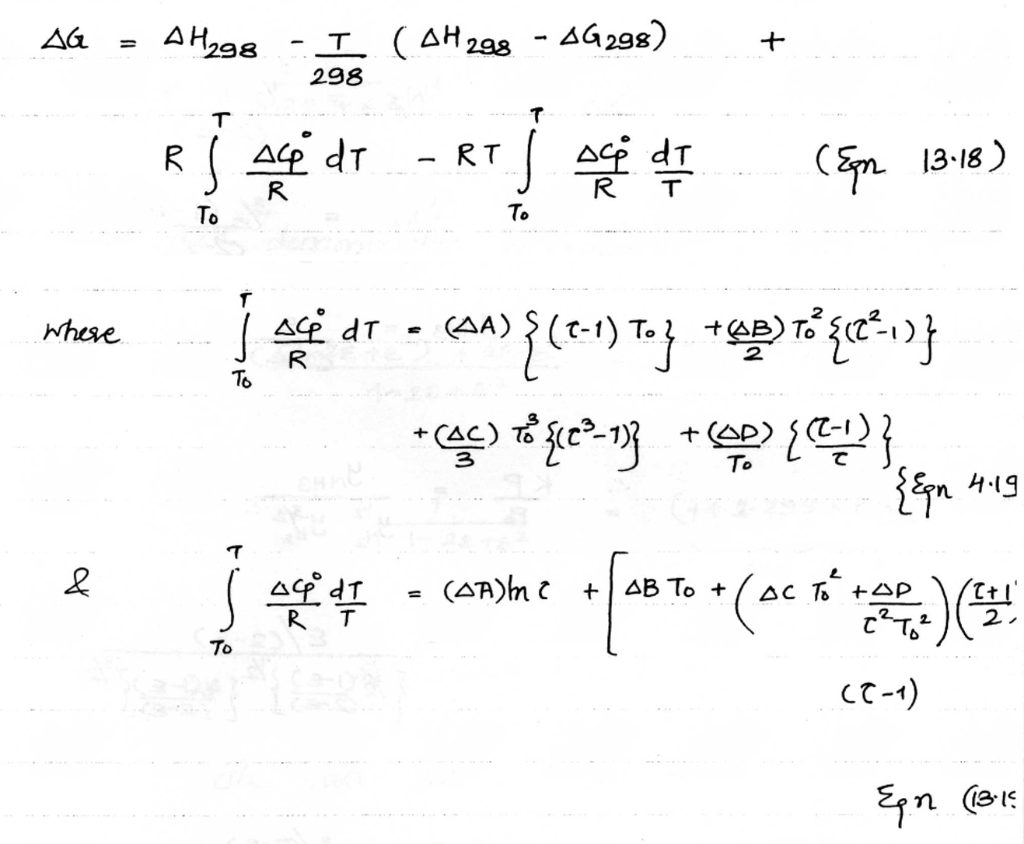 ΔG = ΔH298 - T/298 (ΔH298 - ΔG298) +
R ∫_{T0}^{T} ΔCp°/R dT - RT ∫_{T0}^{T} ΔCp°/R dT/T (Eqn 13.18)
where ∫_{T0}^{T} ΔCp°/R dT = (ΔA) {(τ-1) T0} + (ΔB)/2 T0² {(τ²-1)}
+ (ΔC)/3 T0³ {(τ³-1)} + (ΔD)/T0 {(τ-1)/τ}
{Eqn 4.19
& ∫_{T0}^{T} ΔCp°/R dT/T = (ΔA) ln τ + [ΔB T0 + (ΔC T0² + ΔD/τ²T0²)(τ+1/2)
(τ-1)
Eqn (13.19